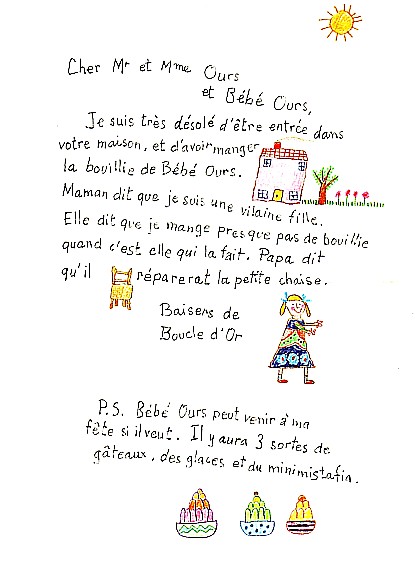 Cher Mr et Mme Ours
et Bébé Ours,
Je suis très désolé d'être entrée dans
votre maison, et d'avoir manger
la bouillie de Bébé Ours.
Maman dit que je suis une vilaine fille.
Elle dit que je mange presque pas de bouillie
quand c'est elle qui la fait. Papa dit
qu'il réparerat la petite chaise.
Baisers de
Boucle d'Or
P.S. Bébé Ours peut venir à ma
fête si il veut. Il y aura 3 sortes de
gâteaux, des glaces et du minimistafin.